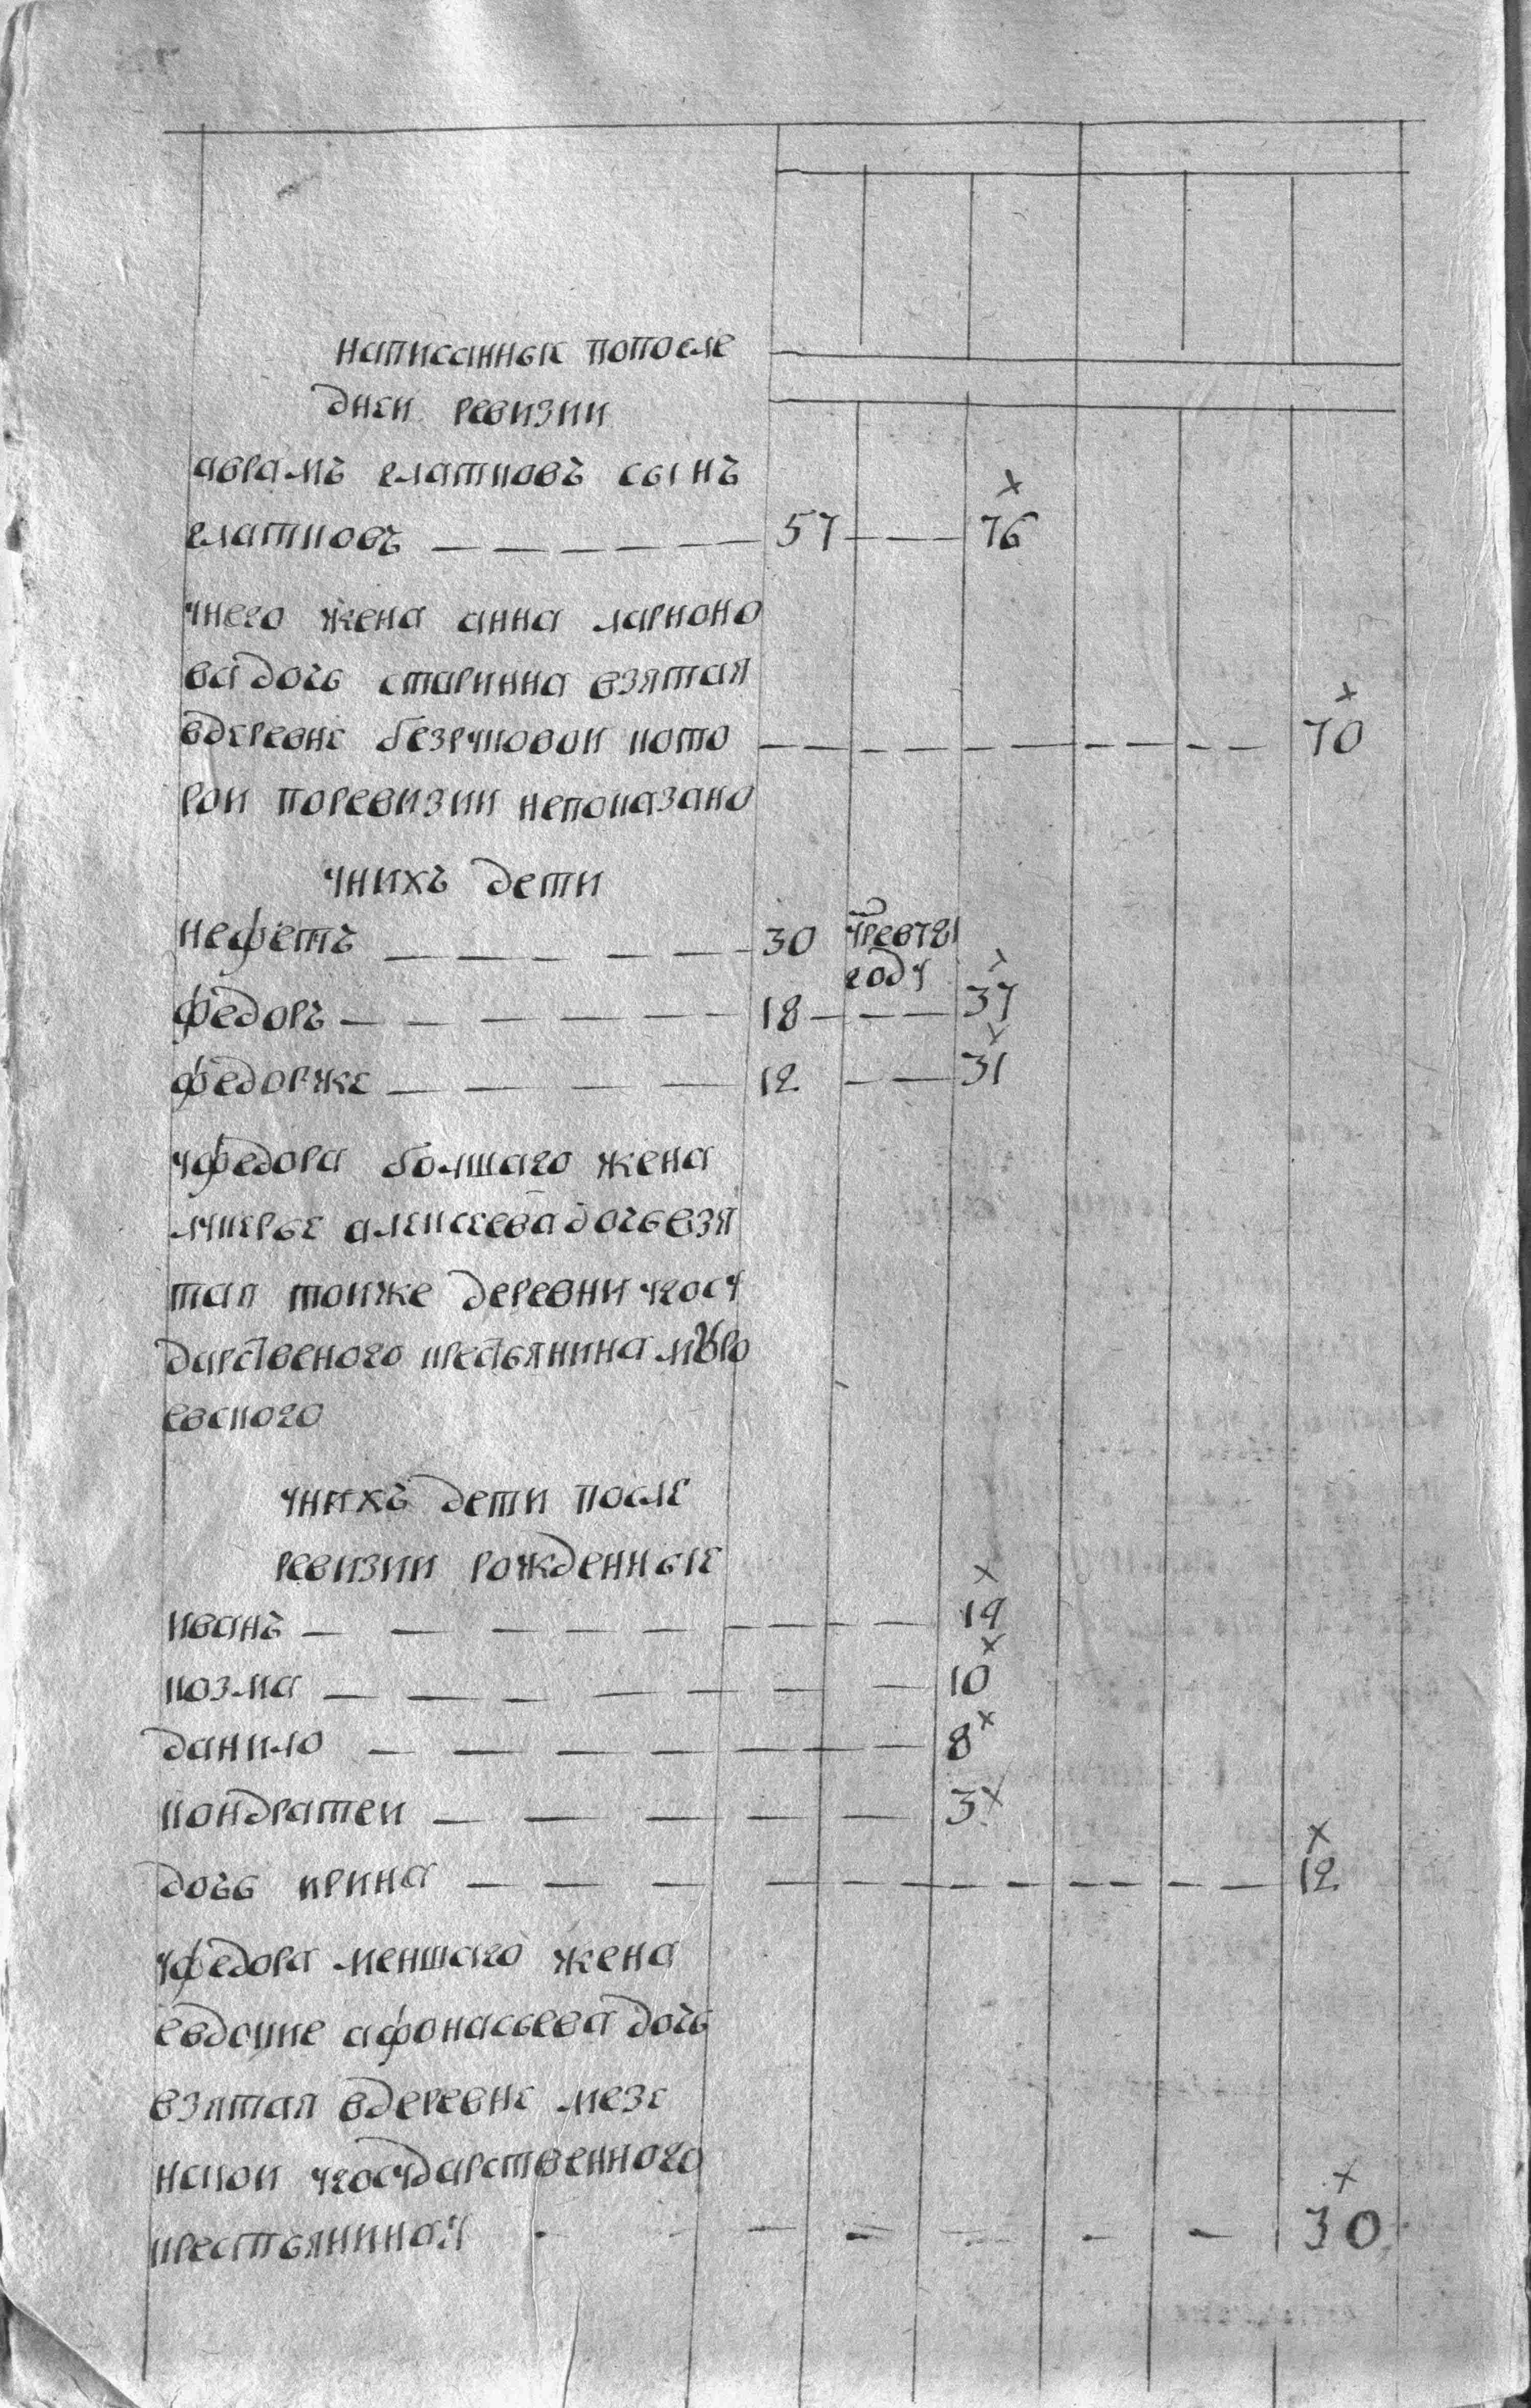 написанные попосле
днеи ревизии
аврамъ глатковъ сынъ
глатковъ — — — — — — 57 — — 76
унего жена анна ларионо
ва дочь старинна взятая
вдеревне безруковои кото — — — — — — — — 70
рои поревизии непоказано
унихъ дети
нефетъ — — — — — — 30
году
федоръ — — — — — — 18 — — — 37
федорже — — — — — 12 — — 31
уфедора болшаго жена
лукерье алексеева дочь взя
тая тоиже деревни угосу
дарственого крестьянина
евского
унихъ дети после
ревизии рожденные
иванъ — — — — — — — — — 19
козма — — — — — — — — 10
данило — — — — — — — 8
кондратеи — — — — — 3
дочь ирина — — — — — — — — — — — 12
уфедора меншаго жена
евдокие афонасьева дочь
взятая вдеревне мезе
нскои угосударственного
крестьянина - - — — — - — 30